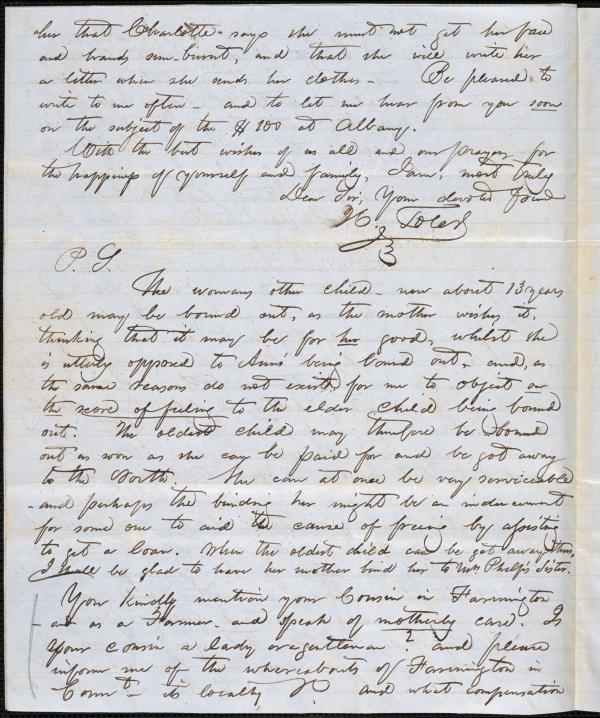 her that Charlotte says she must not get her face
and hands sun-burnt, and that she will write her
a letter when she sends her clothes - Be pleased to
write to me often - and to let me hear from you soon
on the subject of the $100 at Albany.
With the best wishes of us all and our prayers for
the happiness of yourself and family, I am, most truly
Dear Sir, Your devoted friend
H. Toler
P. S.
The womans other child - now about 13 years
old may be bound out, as the mother wishes it,
thinking that it may be for her good, whilst she
is utterly opposed to Ann's being bound out, and, as
the same reasons do not exist, for me to object on
the score of feeling to the elder child being bound
out. The oldest child may therefore be bound
out as soon as she can be paid for and be got away
to the North. She can at once be very serviceable
- and perhaps the binding her might be an inducement
for some one to aid the cause of freeing by assisting
to get a loan. When the oldest child can be got away thus,
I shall be glad to have her mother bind her to Mrs Phelps' sister.
You kindly mention your Cousin in Farmington
- as a Farmer - and speak of motherly care. Is
your cousin a lady or a gentleman? and please
inform me of the whereabouts of Farmington in
Connt - its locality &c and what compensation